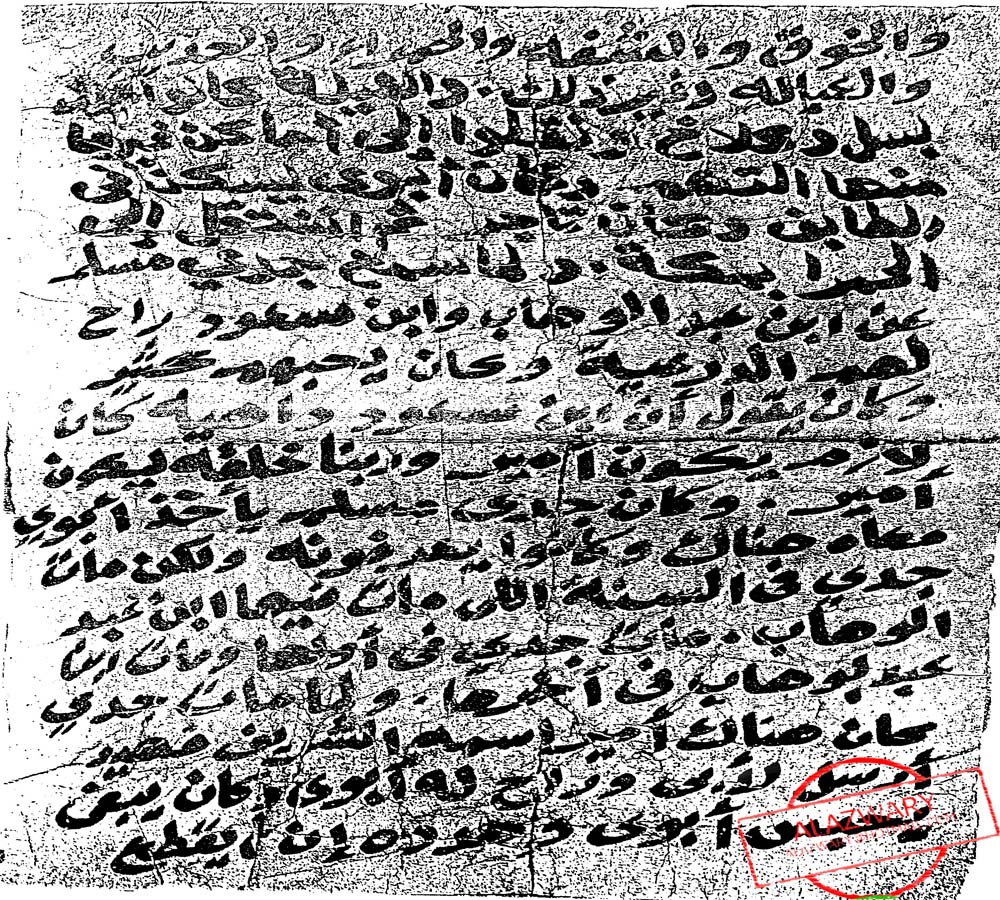 والخوق والشغله والصدام والحدب
والكباله وغير ذلك . والقبيلة كانوا
بسل وكلاخ . وانتقلوا إلى أماكن غيرها
منها التهم وكان أبوي يسكن في
الطايف وكان تاجر ثم انتقل إلى
الحمرا بمكة . ولما سمع جدي مسلم
عن ابن عبد الوهاب وابن سعود راح
لهم الدرعية وكان يحبهم كثير
وكان يقول أن ابن سعود واهله كان
لازم يكون أمير وربنا خلقه ليكون
أمير . وكان جدي مسلم يأخذ أبوي
معاه هناك وكانوا يعرفونه ولكن مات
جدي في السنة اللي مات فيها ابن عبد
الوهاب . مات جدي في أولها ومات ابن
عبد لوهاب في أخرها . ولما مات جدي
كان هناك أمير اسمه الشريف
أرسل لأبي وراح له أبوي وكان يبغى
أبوي وهدده إن
ALAZWARY